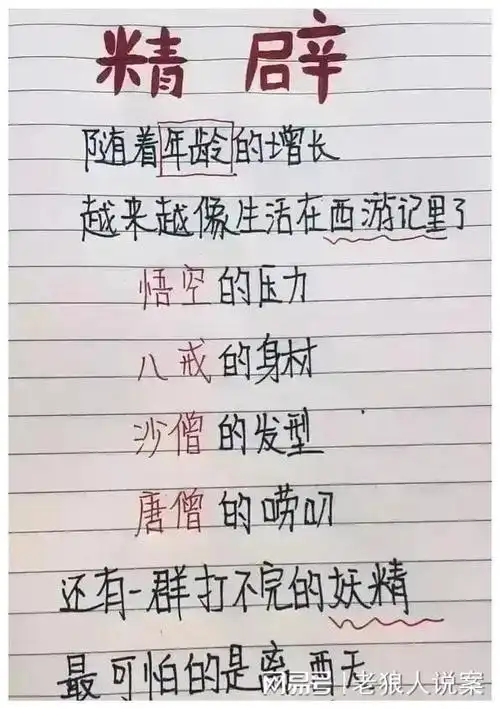 精辟
随着年龄的增长
越来越像生活在西游记里了
悟空的压力
八戒的身材
沙僧的发型
唐僧的唠叨
还有一群打不完的妖精
最可怕的是离西天
网易号 | 老狼人说案